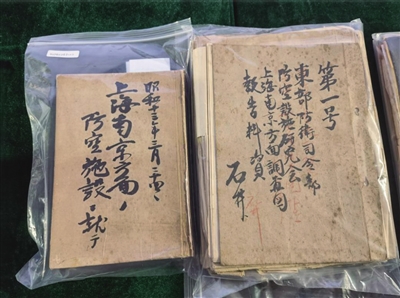 昭和十三年三月
上海南京方面ノ
防空施設ニ就テ
第一号
東部防衛司令部
防空施設研究会
上海南京方面調査団
報告料
石井